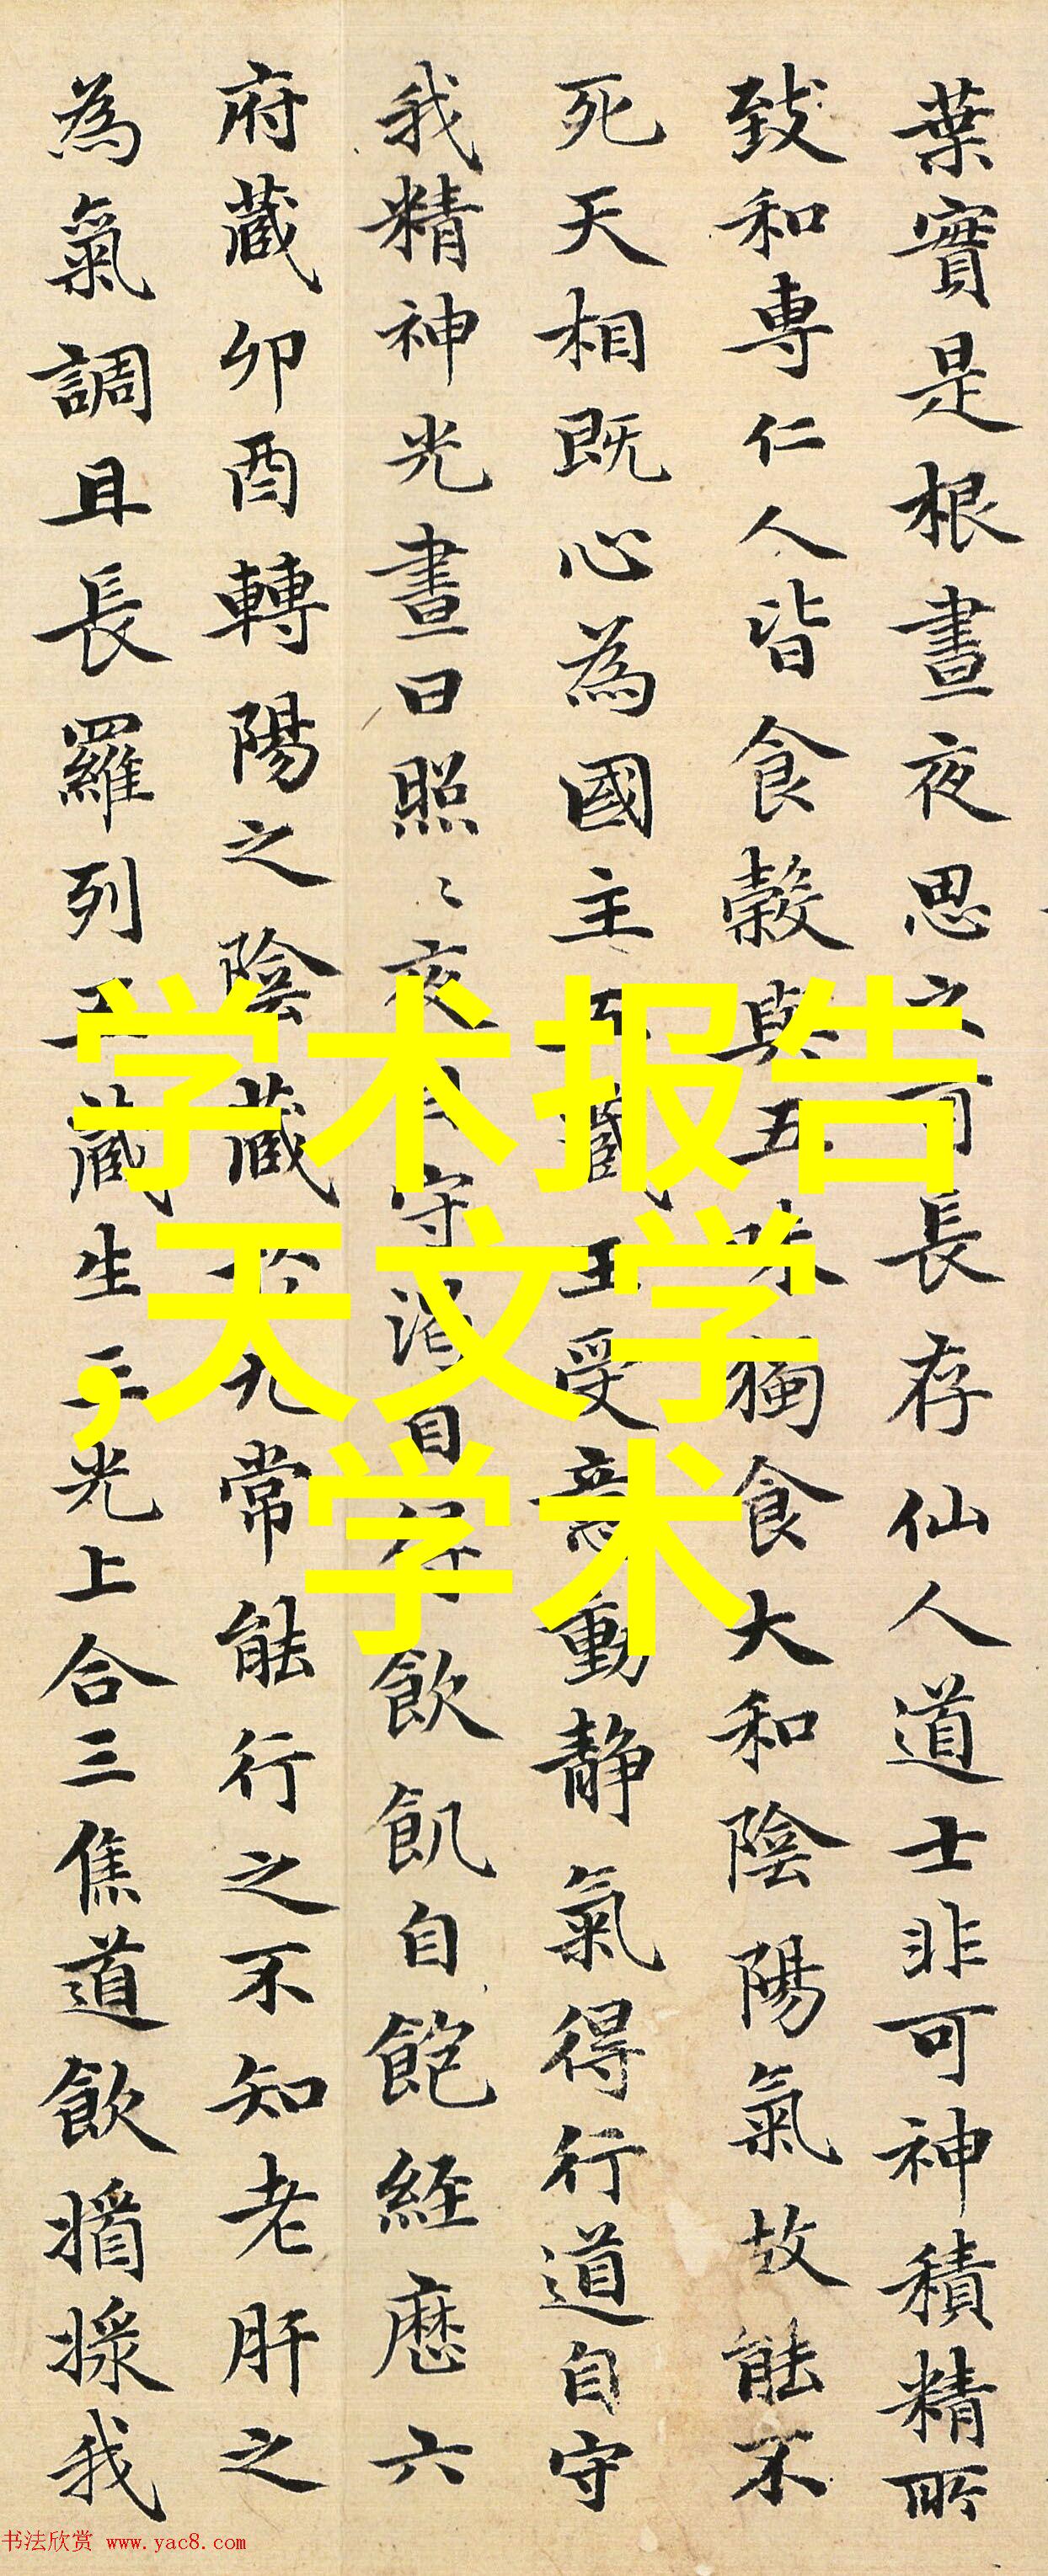 葉實是根晝夜思之可長存仙人道士非可神積精所
致和專仁人皆食穀與五味獨食大和陰陽氣故能不
死天相既心為國主五藏王受意動靜氣得行道自守
我精神光晝日照〻夜自守渴自得飲飢自飽經歷六
府藏卯酉轉陽之陰藏於九常能行之不知老肝之
為氣調且長羅列五藏生三光上合三焦道飲漿我
学术报告
,天文学
学术
书法欣赏 www.yac8.com